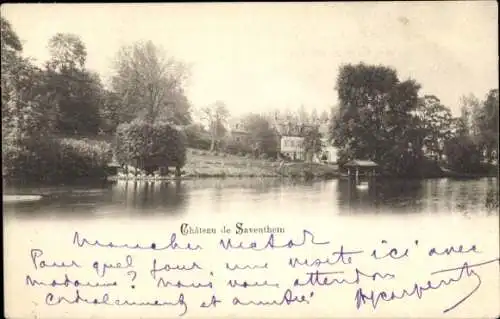 Château de Saventhem
Mon cher Victor
Pour quel jour une visite ici avec
madame? Nous vous attendons
cordialement et une amitiés
HCarpentier